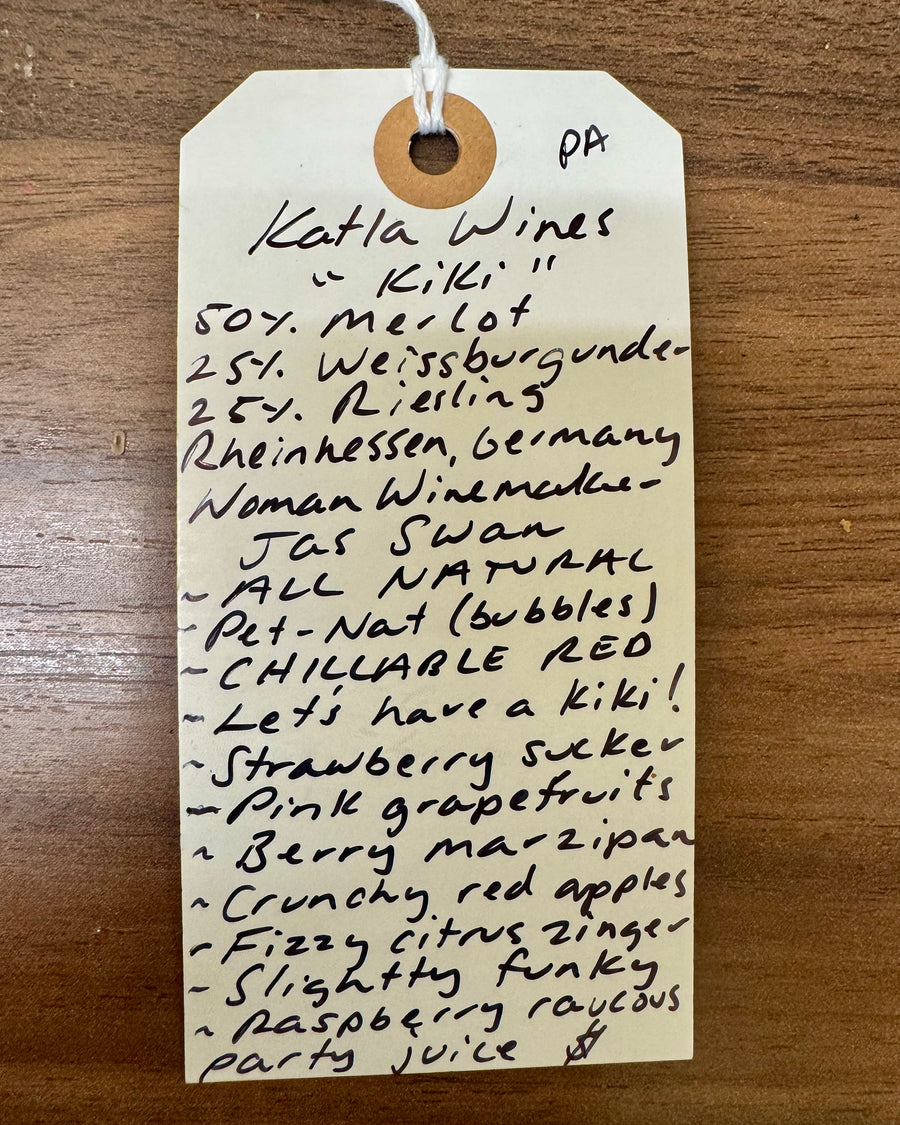 PA
Katla Wines
"Kiki"
50% Merlot
25% Weissburgunder
25% Riesling
Rheinhessen, Germany
Woman Winemaker
Jas Swan
~ ALL NATURAL
- Pet-Nat (bubbles)
~ CHILLABLE RED
~ Let's have a kiki!
~ Strawberry sucker
- Pink grapefruits
~ Berry marzipan
~ Crunchy red apples
~ Fizzy citrus zinger
~ Slightty funky
~ Raspberry raucous
party juice $